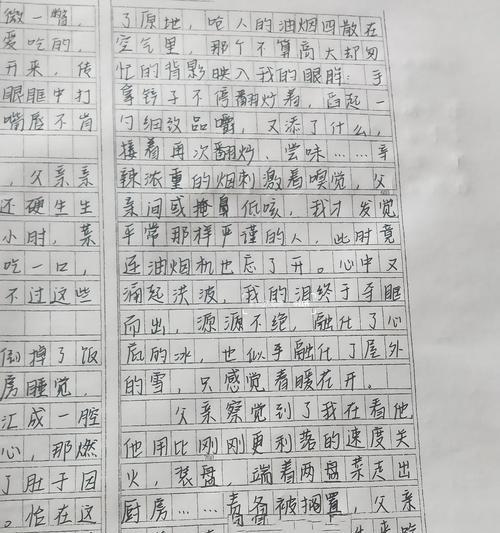 微一瞥，
爱吃的，
开来，传
眼眶中打
嘴唇不肯
，父亲亲
还硬生生
小时，菜
吃一口，
不过这些
倒掉了饭
房睡觉，
汇成一腔
心，那燃
了肚于因
。怡在这
了原地，呛人的油烟四散在
空气里，那个不算高大却匆
忙的背影映入我的眼眸：手
拿铲子不停翻炒着，舀起一
勺细致品嚼，又添了什么，
接着再次翻炒、尝味……辛
辣浓重的烟刺激着嗅觉，父
亲间或掩鼻低咳，我才发觉
平常那样严谨的人，此时竟
连油烟机也忘了开。心中又
涌起洪波，我的泪终于夺眶
而出，源源不绝，融化了心
底的冰，也似乎融化了屋外
的雪，只感觉春暖花开。
父亲察觉到了我在看他
他用比刚刚更利落的速度关
火，装盘，端着两盘菜走出
厨房……责备被搁置，父亲